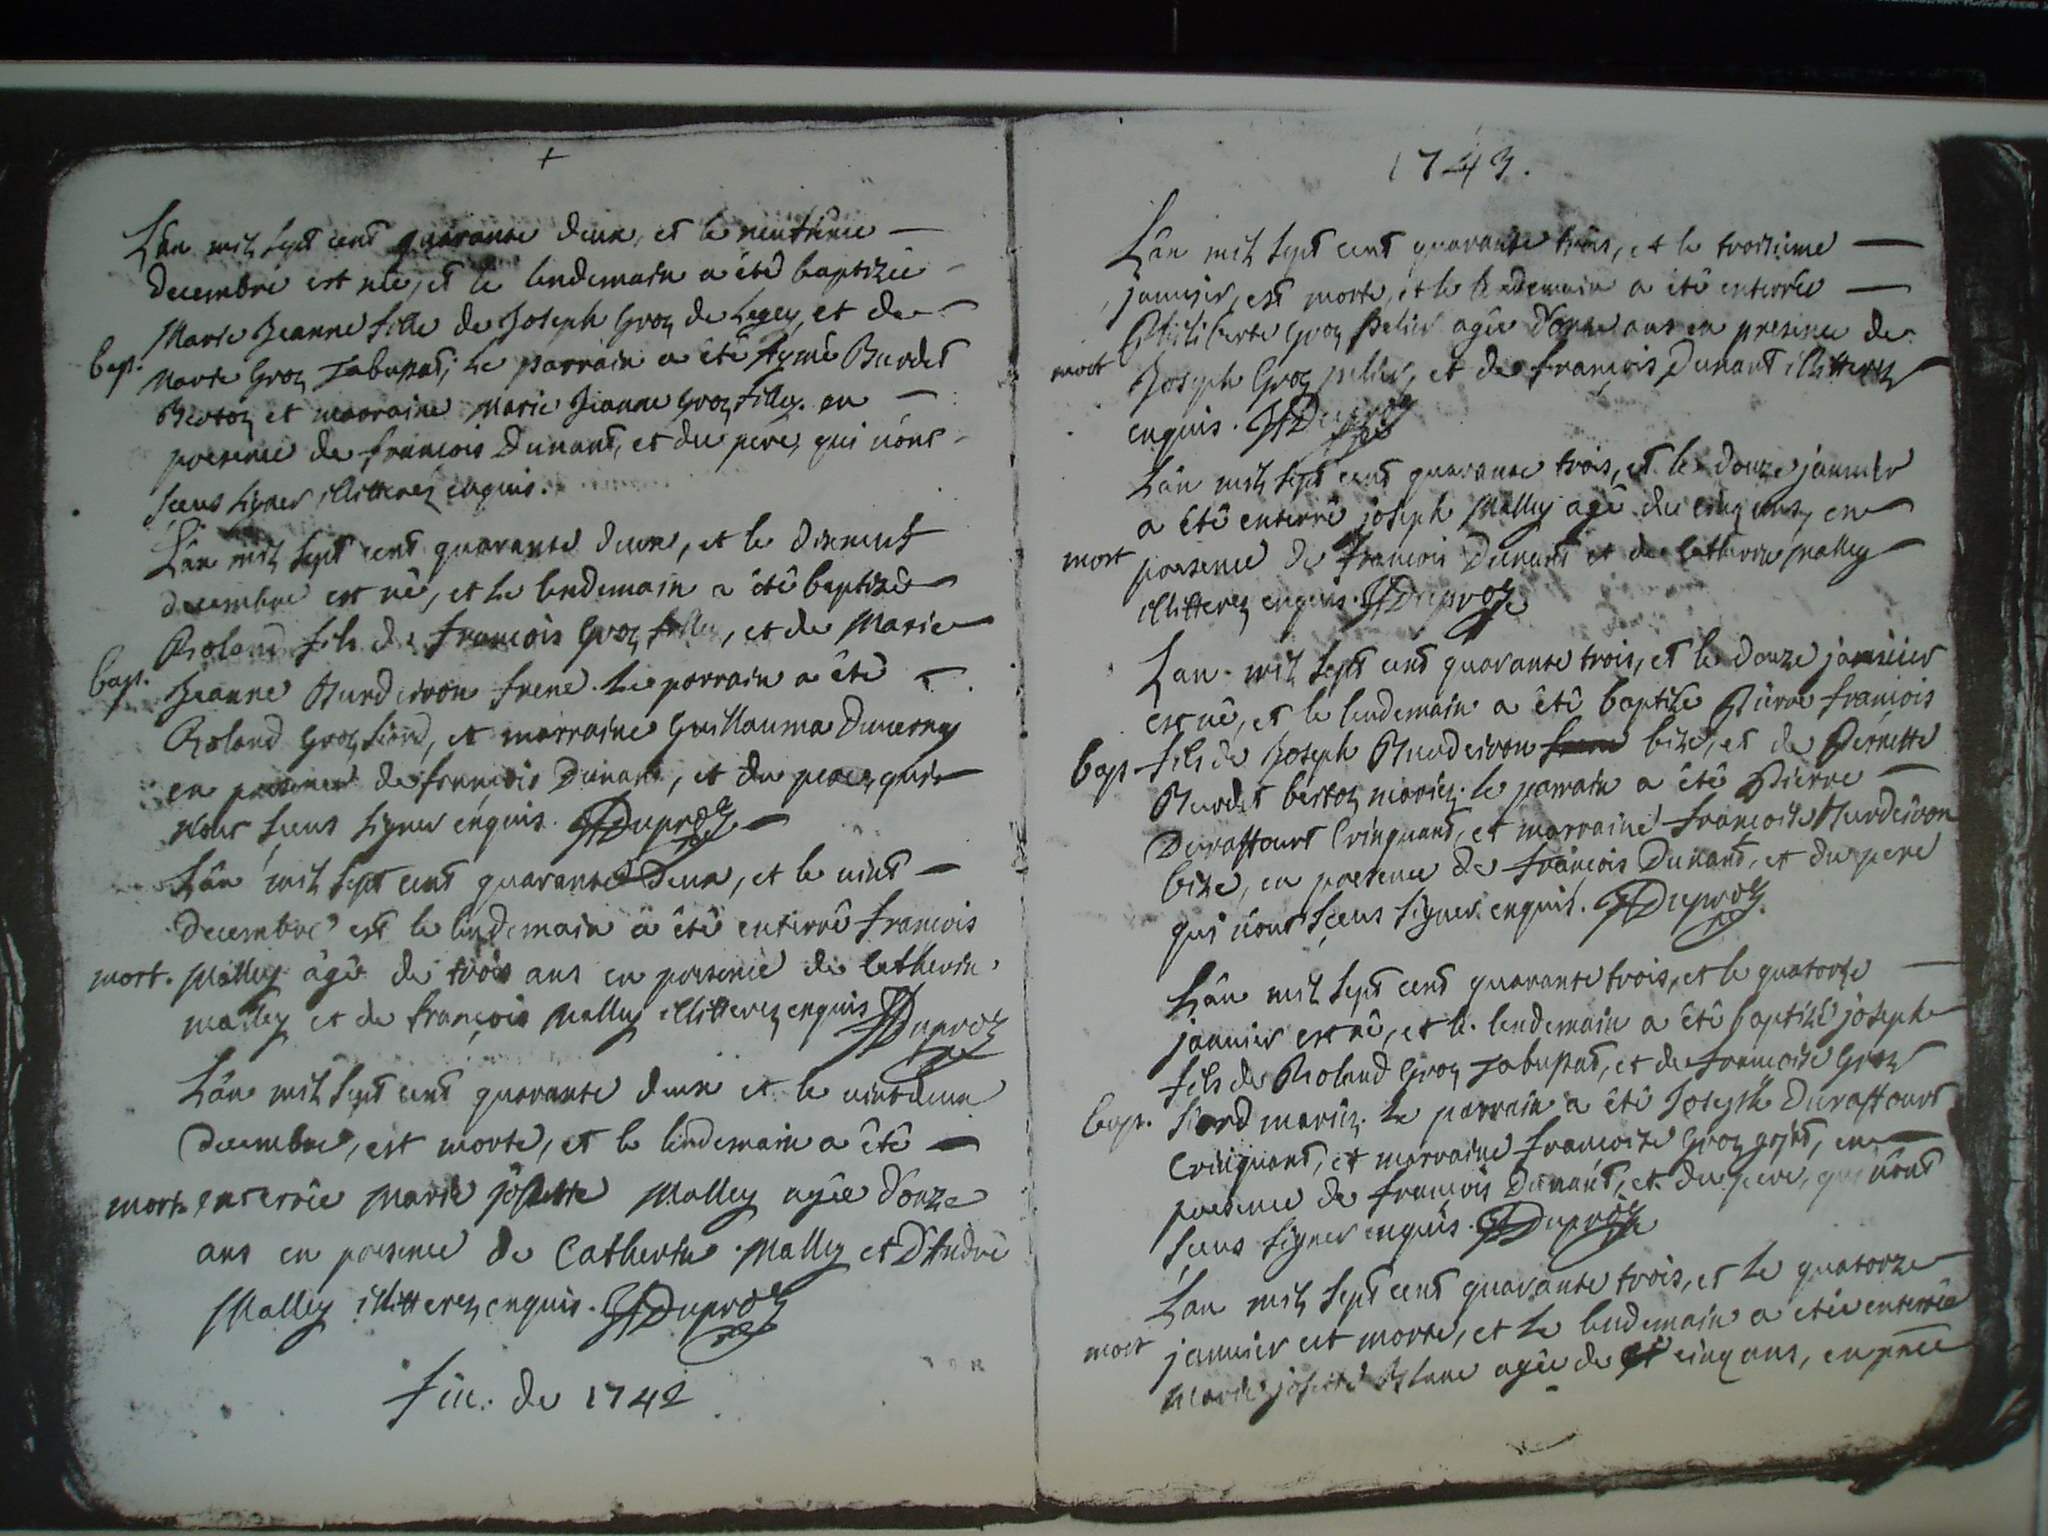 +
Lân mil sept cent quarante deux, et le neufième
decembre est née, et le lendemain a êtê baptizée
Marie Jeanne fille de Joseph Groz de Legey, et de
bap. Marie Groz Jabussat; le parrain a êtê Aymé Burdet
Bertoz et marraine Marie Jeanne Groz filley. en
presence de françois Dunant, et du pere, qui n'ont
sceus signer illitterez enquis.
Lân mil sept cent quarante deux, et le dixneuf
decembre est nê, et le lendemain a êtê baptizê
Roland fils de françois Groz, et de Marie
bap. Jeanne Burdeiron frene. le parrain a êtê
Roland Groz fiord, et marraine Guillauma
en presence de françois Dunant, et du pere, qui
n'ont sceus signer enquis. Duproz
Lân mil sept cent quarante deux, et le vint
decembre est le lendemain a êtê enterrê françois
mort. Malley âgé de trois ans en presence de Catherine
Malley et de françois Malley illitterez enquis Duproz
Lân mil sept cent quarante deux et le vintdeux
decembre, est morte, et le lendemain a êtê
mort. enterrêe Marie josette Malley agée d'onze
ans en presence de Catherine Malley et d'Andrê
Malley illitterez enquis. Duproz
fin. de 1742
1743.
Lân mil sept cent quarante trois, et le troisieme
janvier, est morte, et le lendemain a êtê enterrêe
Philiberte Groz pelier agée d'onze ans en presence de
mort Joseph Groz pelier, et de françois Dunant illitterez
enquis. Duproz
Lân mil sept cent quarante trois, et le douze janvier
a êtê enterrê joseph Malley agê de cinq ans, en
mort presence de françois Dunant et de Catherine Malley
illitterez enquis. Duproz
Lan mil sept cent quarante trois, et le douze janvier
est nê, et le lendemain a êtê baptisé Pierre françois
bap. fils de Joseph Burdeiron bize, et de Pernette
Burdet bertoz mariez. le parrain a êtê Pierre
Duraffourt Crinquand, et marraine françoise Burdeiron
bize, en presence de françois Dunant, et du pere
qui n'ont sceus signer enquis. Duproz
Lân mil sept cent quarante trois, et le quatorze
janvier est nê, et le lendemain a êtê baptizê joseph
fils de Roland Groz Jabussat, et de françoise Groz
bap. fiord mariez. le parrain a êtê Joseph Duraffourt
Crinquand, et marraine françoise Groz gojet, en
presence de françois Dunant, et du pere, qui n'ont
sceus signer enquis. Duproz
Lan mil sept cent quarante trois, et le quatorze
mort janvier est morte, et le lendemain a etée enterrêe
Marie josette Blanc agée de cinq ans, en pnce